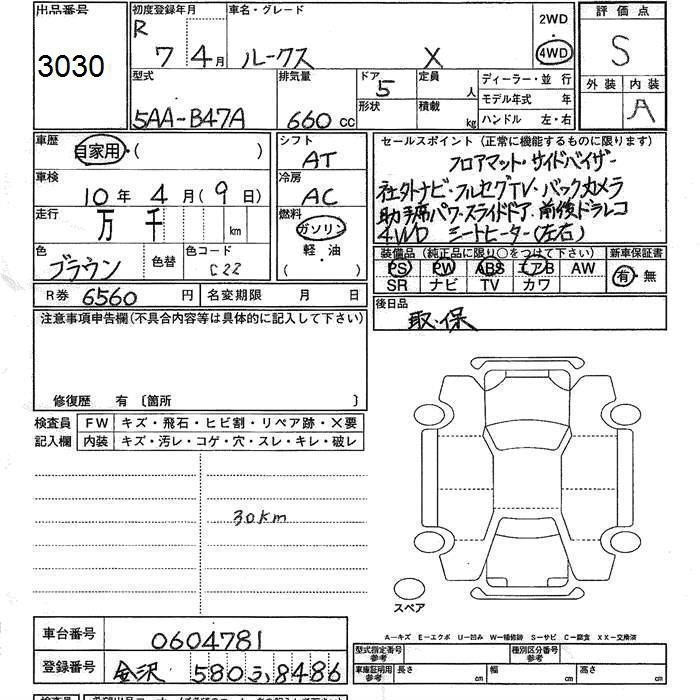 出品番号 初度登録年月 車名・グレード
3030
R 7 4月 ルークス X 2WD 4WD
評価点 S
外装 内装 A
型式 5AA-B47A
排気量 660 cc
ドア 5 形状
定員 人 積載 kg
ディーラー・並行
モデル年式 年
ハンドル 左・右
車歴 自家用・( )
シフト AT
車検 10年 4月(9日)
冷房 AC
走行 万 千 km
燃料 ガソリン 軽・油 ( )
色 ブラウン 色替 色コード C22
R券 6560 円 名変期限 月 日
セールスポイント (正常に機能するものに限ります)
フロアマット・サイドバイザー
社外ナビ・フルセグTV・バックカメラ
助手席パワースライドドア・前後ドラレコ
4WD シートヒーター(左右)
装備品 (純正品に限り○をつけて下さい) 新車保証書
PS PW ABS エアB AW 有・無
SR ナビ TV カワ
後日品
取・保
注意事項申告欄(不具合内容等は具体的に記入して下さい)
修復歴 有 〔箇所 〕
検査員 FW キズ・飛石・ヒビ割・リペア跡・X要
記入欄 内装 キズ・汚レ・コゲ・穴・スレ・キレ・破レ
30km
スペア
車台番号 0604781
登録番号 金沢 580 8486
A-キズ E-エクボ U-凹み W-補修跡 S-サビ C-腐食 XX-交換済
型式指定番号 参考 種別区分番号 参考
車庫証明用 参考 長さ cm 幅 cm 高さ cm